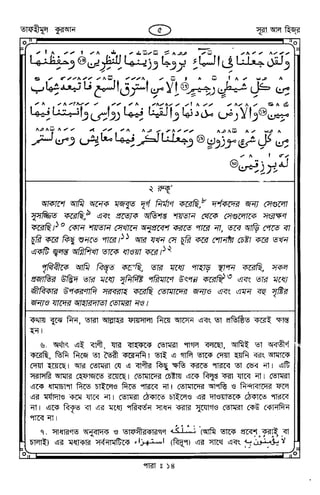 তাফহীমুল কুরআন
৫
সূরা আল হিজর
وَلَقَدْ جَعَلْنَا فِي السَّمَاءِ بُرُوجًا وَزَيَّنَّاهَا لِلنَّاظِرِينَ ۝ وَحَفِظْنَاهَا
مِنْ كُلِّ شَيْطَانٍ رَجِيمٍ ۝ إِلَّا مَنِ اسْتَرَقَ السَّمْعَ فَأَتْبَعَهُ شِهَابٌ
مُبِينٌ ۝ وَالْأَرْضَ مَدَدْنَاهَا وَأَلْقَيْنَا فِيهَا رَوَاسِيَ وَأَنْبَتْنَا فِيهَا
مِنْ كُلِّ شَيْءٍ مَوْزُونٍ ۝ وَجَعَلْنَا لَكُمْ فِيهَا مَعَايِشَ وَمَنْ لَسْتُمْ
لَهُ بِرَازِقِينَ ۝
২ রুকূ'
আকাশে আমি অনেক মজবুত দুর্গ নির্মাণ করেছি,৮ দর্শকদের জন্য সেগুলো
সুসজ্জিত করেছি,৯ এবং প্রত্যেক অভিশপ্ত শয়তান থেকে সেগুলোকে সংরক্ষণ
করেছি।১০ কোন শয়তান সেখানে অনুপ্রবেশ করতে পারে না, তবে আড়ি পেতে বা
চুরি করে কিছু শুনতে পারে।১১ আর যখন সে চুরি করে শোনার চেষ্টা করে তখন
একটি জ্বলন্ত অগ্নিশিখা তাকে ধাওয়া করে।১২
পৃথিবীকে আমি বিস্তৃত করেছি, তার মধ্যে পাহাড় স্থাপন করেছি, সকল
প্রজাতির উদ্ভিদ তার মধ্যে সুনির্দিষ্ট পরিমাণে উৎপন্ন করেছি১৩ এবং তার মধ্যে
জীবিকার উপকরণাদি সরবরাহ করেছি তোমাদের জন্যও এবং এমন বহু সৃষ্টির
জন্যও যাদের আহারদাতা তোমরা নও।
কথায় বুঝে নিন, তারা আল্লাহর ফায়সালা নিয়ে আসেন এবং তা প্রতিষ্ঠিত করেই ক্ষান্ত
হন।
৬. অর্থাৎ এই বাণী, যার বাহককে তোমরা পাগল বলছো, আমিই তা অবতীর্ণ
করেছি, তিনি নিজে তা তৈরী করেননি। তাই এ গালি তাকে দেয়া হয়নি বরং আমাকে
দেয়া হয়েছে। আর তোমরা যে এ বাণীর কিছু ক্ষতি করতে পারবে তা ভেব না। এটি
সরাসরি আমার হেফাজতে রয়েছে। তোমাদের চেষ্টায় একে বিলুপ্ত করা যাবে না। তোমরা
একে ধামাচাপা দিতে চাইলেও দিতে পারবে না। তোমাদের আপত্তি ও নিন্দাবাদের ফলে
এর মর্যাদাও কমে যাবে না। তোমরা ঠেকাতে চাইলেও এর দাওয়াতকে ঠেকাতে পারবে
না। একে বিকৃত বা এর মধ্যে পরিবর্তন সাধন করার সুযোগও তোমরা কেউ কোনদিন
পাবে না।
৭. সাধারণত অনুবাদক ও তাফসীরকারগণ نَسْلُكُهُ (আমি তাকে প্রবেশ করাই বা
চালাই) এর মধ্যকার সর্বনামটিকে استهزاء (বিদ্রূপ) এর সাথে এবং لَا يُؤْمِنُونَ بِهِ
পারা ঃ ১৪